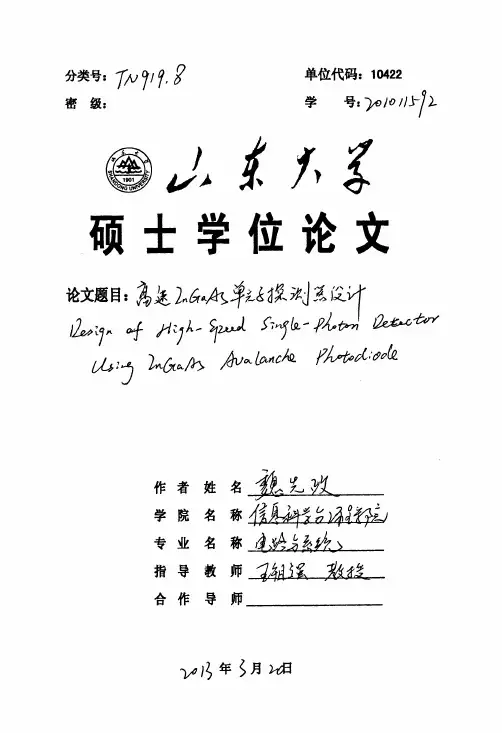 分类号：TN919.8
单位代码：10422
密 级：
学 号：201011592
山东大学
SHANDONG UNIVERSITY
1901
硕士学位论文
论文题目：高速InGaAs单光子探测器设计
Design of High-Speed Single-Photon Detector
Using InGaAs Avalanche Photodiode
作者姓名 魏先政
学院名称 信息科学与工程学院
专业名称 电路与系统
指导教师 教授
合作导师
2013年5月20日